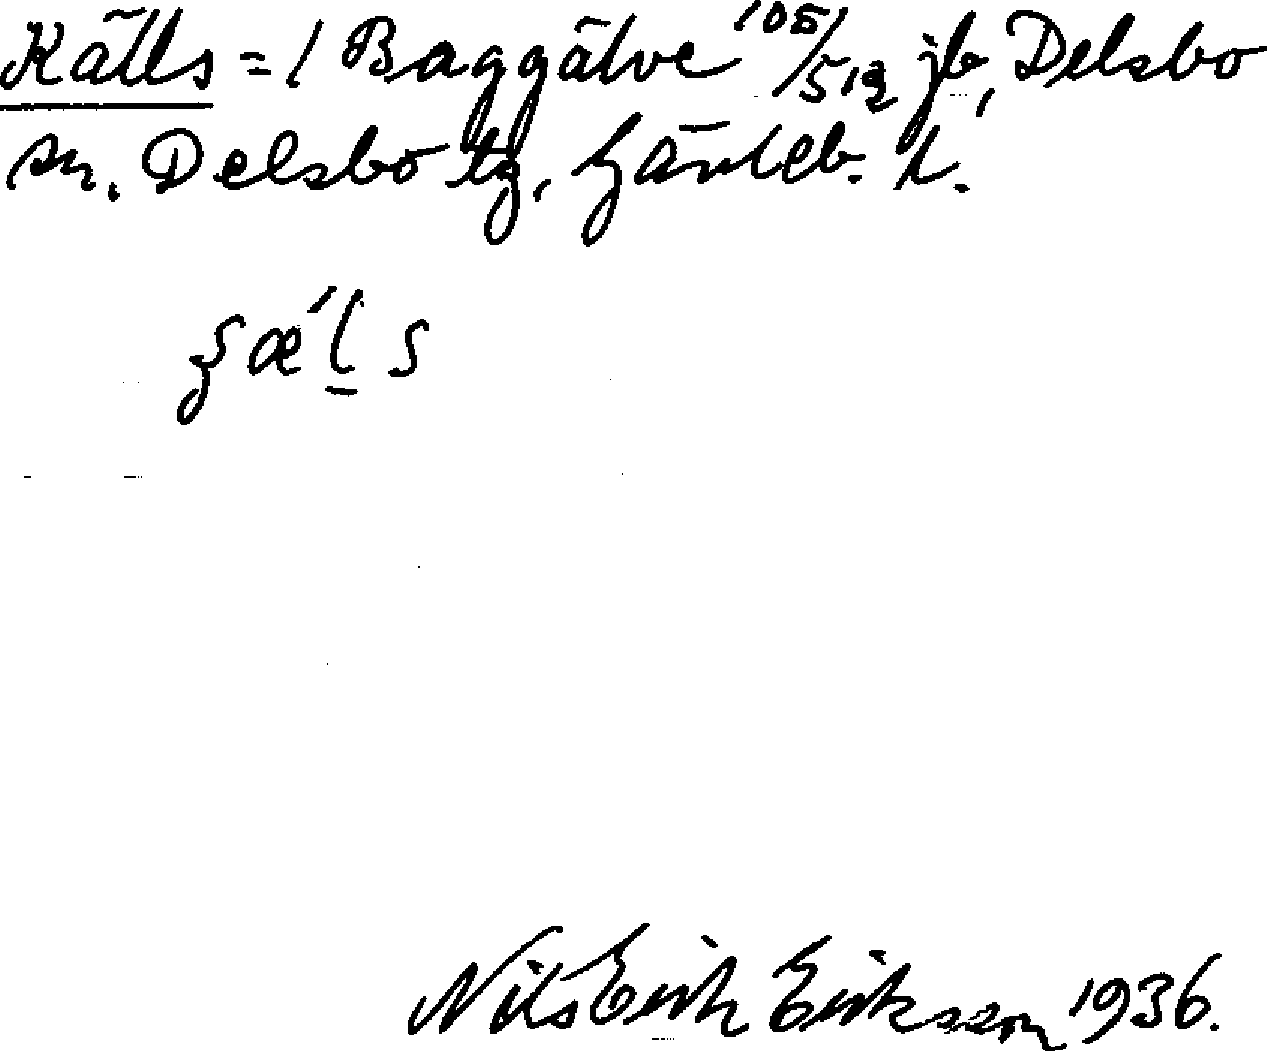 Källs = 1 Baggälve 105/512 jb, Delsbo
sn. Delsbo tg, Gävleb. l.
ʂæ´l̲s
Nils Erik Eriksson 1936.